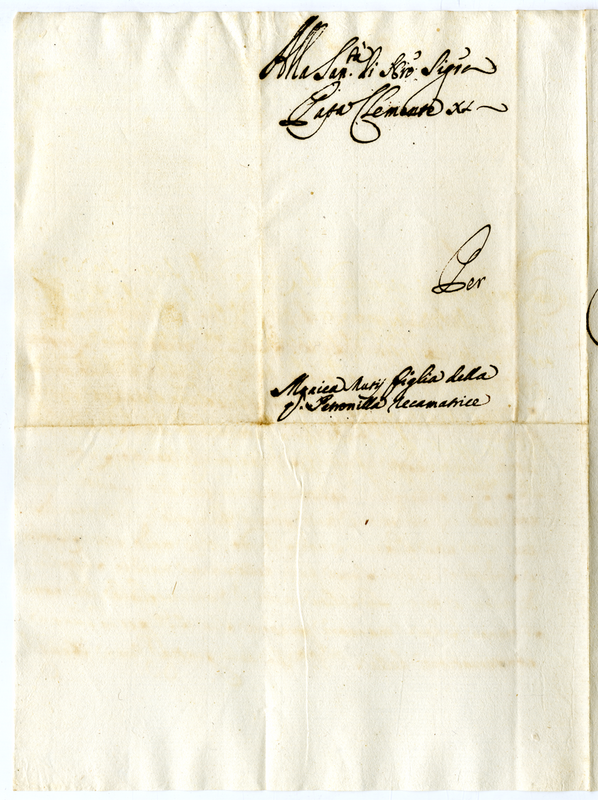 Alla San.tà di Nro Sigre
Papa Clemente XI
Per
Monica Mutij figlia della
q. Petronilla Recamatrice